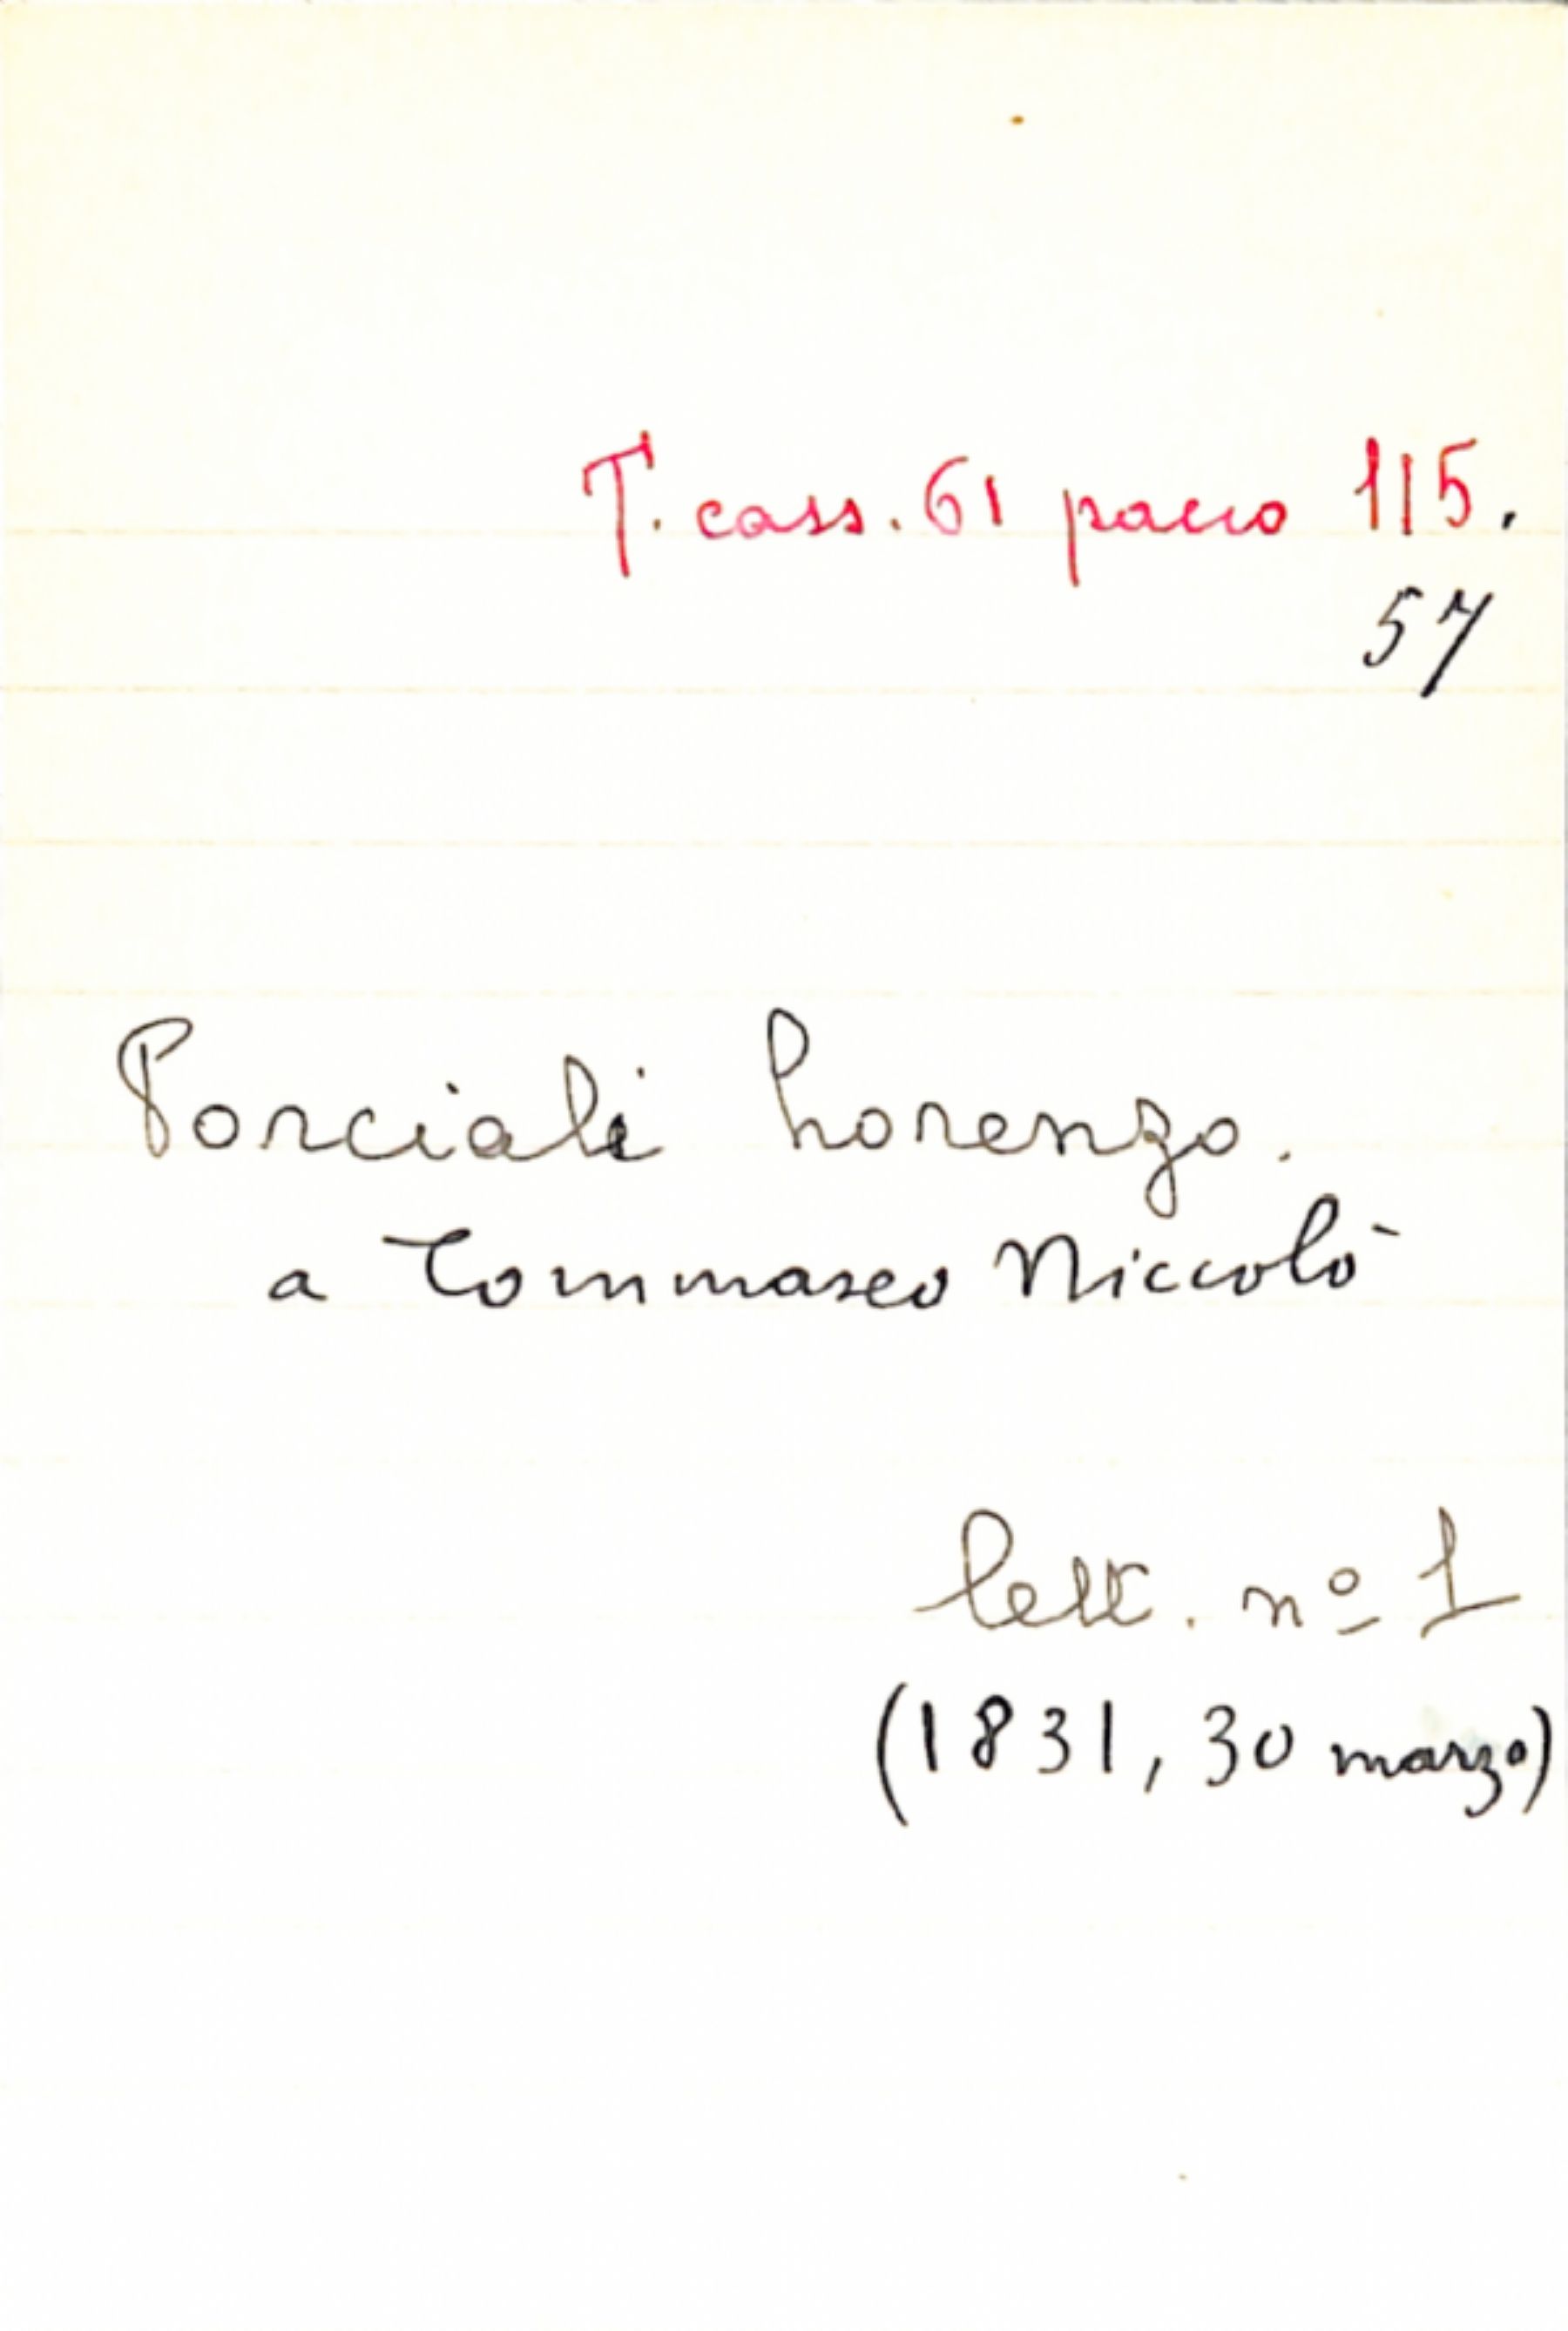 T. cass. 61 pacco 115.
57
Porciali Lorenzo.
a Tommaseo Niccolò
lett. nº 1
(1831, 30 marzo)